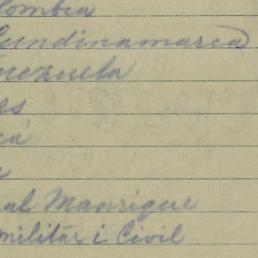 lombia
Cundinamarca
nezuela
es
ca
a
al Manrique
militar i Civil